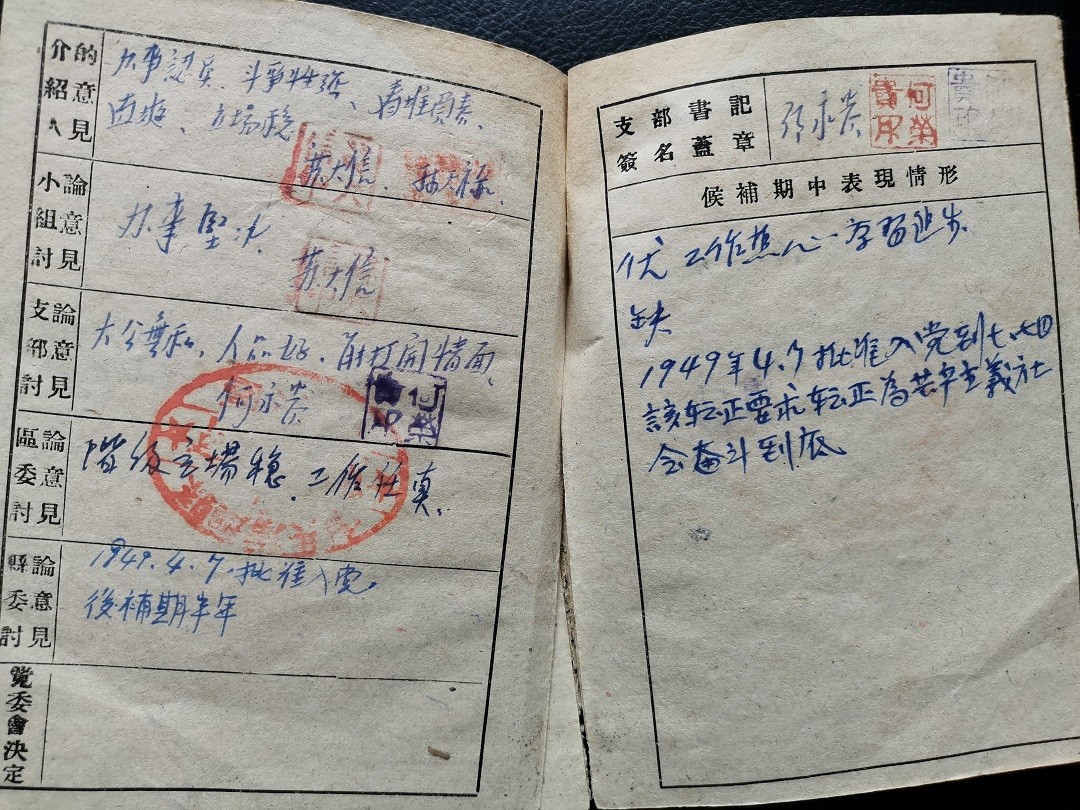 介紹人的意見
办事認真、斗爭性強、
直爽、立場稳
苏大信
小組討論意見
办事堅决
苏大信
支部討論意見
大公無私、人品好、
開情面、
何永荣
區委討論意見
階级立場稳、工作任真、
縣委討論意見
1949.4.7.批准入党。
後補期半年
党委會決定
支部書記
簽名蓋章
候補期中表現情形
优 工作热心、学習进步
缺
1949年4.7批准入党到
該転正要求転正為共产主義社
会奋斗到底